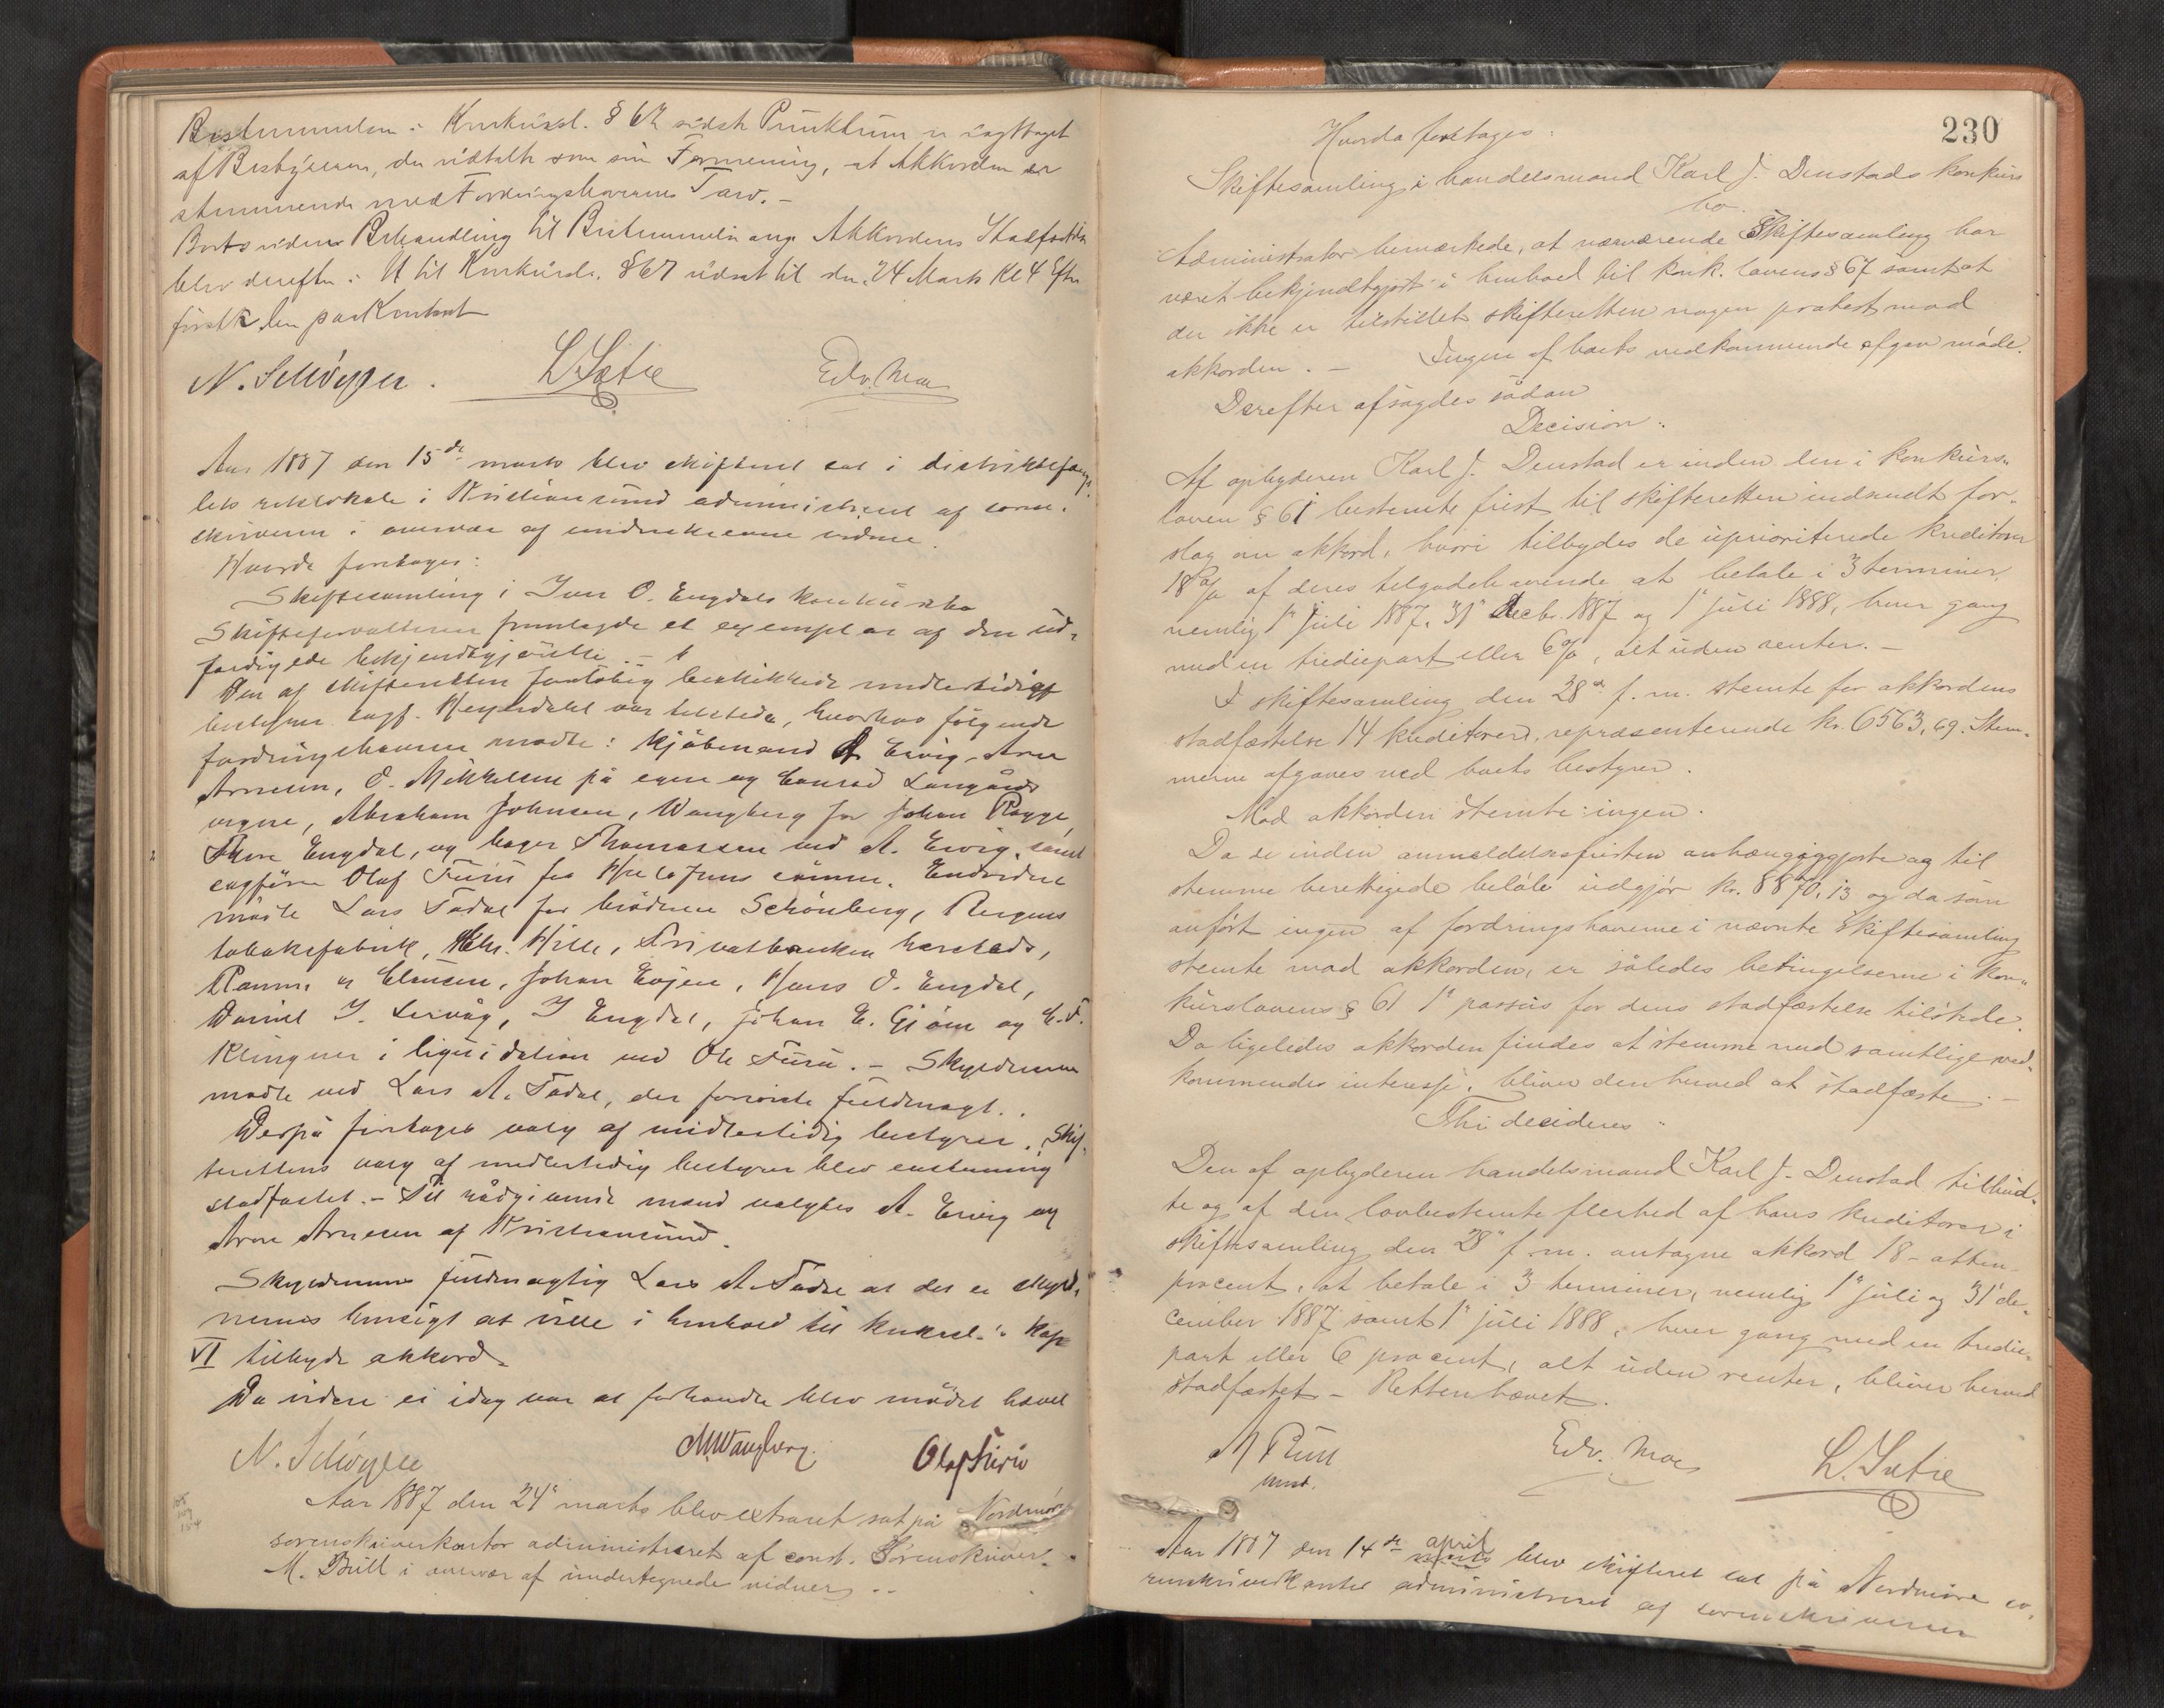 Bestemmelsen i Konkursl. § 62 sidste Punktum er iagttaget
af Bestyreren, der udtalte som sin Formening, at Akkorden er
stemmende med Fordringshavernes Tarv. –
Boets videre Behandling til Bestemmelse ang. Akkordens Stadfæstelse
blev derefter i H til Konkursl. § 67 udsat til den 24 Marts Kl 4 Efter
førstk. her paa Kontoret
N. Schöyen. L. Sætre Edv. Moe
Aar 1887 den 15de marts blev skifteret sat i distriktsfæng-
lets retslokale i Kristiansund administreret af soren-
skriveren i overvær af undertegnede vidner.
Hvorda foretoges:
Skiftesamling i Iver O. Engdals konkursbo
Skifteforvalteren fremlagde et exemplar af den ud-
færdigede bekjendtgjørelse. –
Den af skifteretten foreløbig beskikkede midlertidige
bestyrer sagf. Heyerdahl var tilstede, hvorhos følgende
fordringshavere mødte: kjøbmand A. Ervig, Arne
Arnesen, O. Mikkelsen på egne og Conrad Langårds
vegne, Abraham Johnsen, Wangberg for Johan Rogge,
Thore Engdal, og bager Thomassen ved A. Ervig, samt
sagfører Olaf Furu for Hellesens sønner. Endvidere
mødte Lars Todal for brødrene Schönberg, Bergens
tobaksfabrik, Chr. Hille, Privatbanken herstedes,
Ramm & Clausen, Johan Eøjen, Hans O. Engdal,
Daniel J. Lervåg, I Engdal, Johan E. Gjøen og C. F.
Klingner i liquidation ved Ole Furu. – Skyldneren
mødte ved Lars A. Todal, der foreviste fuldmagt.
Derpå foretoges valg af midlertidig bestyrer. Skif-
terettens valg af midlertidig bestyrer blev enstemmig
stadfæstet. – Til rådgivende mænd valgtes A. Ervig og
Arne Arnesen af Kristiansund.
Skyldnerens fuldmægtig Lars A. Todal at det er skyld-
nerens hensigt at ville i henhold til konkursl.'s Kap
VI tilbyde akkord.
Da videre ei idag var at forhandle blev mødet hævet
N. Schöyen M. Wangberg. Olaf Furu
Aar 1887 den 24' marts blev extraret sat på Nordmøre
sorenskriverkontor administreret af const. Sorenskriver
M. Bull i overvær af undertegnede vidner. –
230
Hvorda foretages:
Skiftesamling i handelsmand Karl J. Denstads konkurs
bo.
Administrator bemærkede, at nærværende Skiftesamling har
været bekjendtgjort i henhold til konk. lovens § 67 samt at
der ikke er tilstillet skifteretten nogen protest mod
akkorden. – Ingen af boets vedkommende afgav møde.
Derefter afsagdes sådan
Decision:
Af opbyderen Karl J. Denstad er inden den i konkurs-
loven § 61 bestemte frist til skifteretten indsendt for-
slag om akkord, hvori tilbydes de uprioriterede kreditorer
18 % af deres tilgodehavende at betale i 3 terminer,
nemlig 1' juli 1887, 31' decbr. 1887 og 1' juli 1888, hver gang
med en trediepart eller 6 %, alt uden renter. –
I skiftesamling den 28de f. m. stemte for akkordens
stadfæstelse 14 kreditorer, repræsenterende kr. 6563,69. Stem-
merne afgaves ved boets bestyrer.
Mod akkorden stemte ingen.
Da de inden anmeldelsesfristen anhængiggjorte og til
stemme berettigede beløb udgjør kr. 8870,13 og da som
anført ingen af fordringshaverne i nævnte Skiftesamling
stemte mod akkorden, er således betingelserne i kon-
kurslovens § 61 1' passus for dens stadfæstelse tilstede.
Da ligeledes akkorden findes at stemme med samtlige ved-
kommendes interesse, bliver den herved at stadfæste. –
Thi decideres:
Den af opbyderen handelsmand Karl J. Denstad tilbud-
te og af den lovbestemte flerhed af hans kreditorer i
skiftesamling den 28' f. m. antagne akkord 18 – atten –
procent, at betale i 3 terminer, nemlig 1' juli og 31' de-
cember 1887 samt 1' juli 1888, hver gang med en tredie-
part eller 6 procent, alt uden renter, bliver herved
stadfæstet – Retten hævet.
M Bull Edv. Moe L. Sætre
const.
Aar 1887 den 14de april blev skifteret sat på Nordmøre so-
renskriverkontor administreret af sorenskriveren